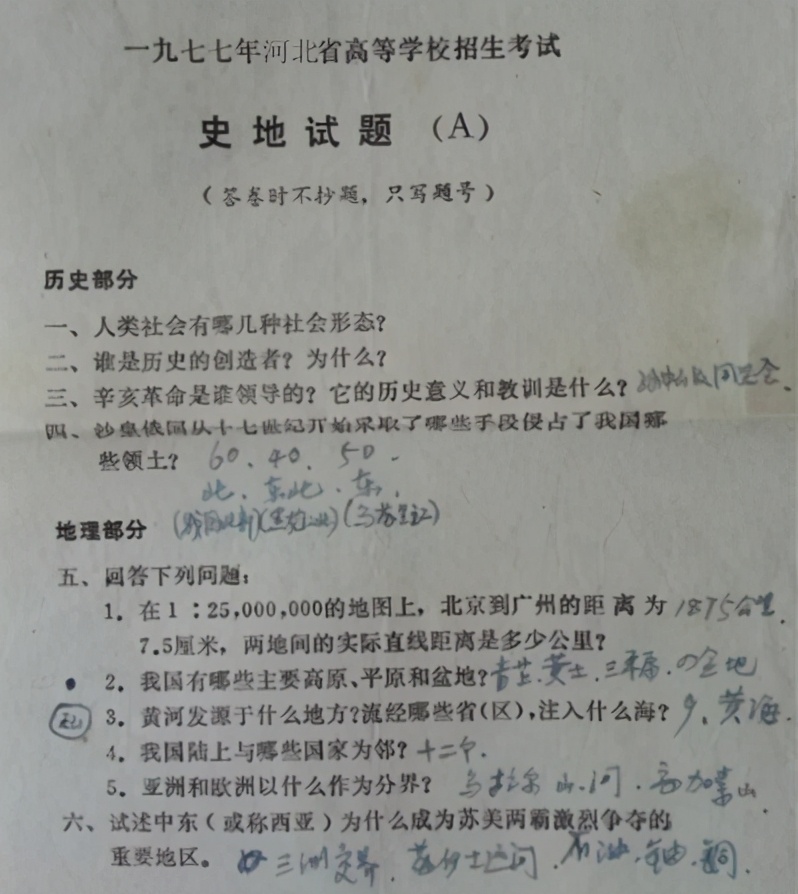 一九七七年河北省高等学校招生考试
史地试题（A）
（答卷时不抄题，只写题号）
历史部分
一、人类社会有哪几种社会形态？
二、谁是历史的创造者？为什么？
三、辛亥革命是谁领导的？它的历史意义和教训是什么？ 同盟会、
四、沙皇俄国从十七世纪开始采取了哪些手段侵占了我国哪
些领土？ 60、40、50
北、东北、东、
地理部分 (乌苏里江)
五、回答下列问题：
1．在1：25,000,000的地图上，北京到广州的距离为 1875公里．
7.5厘米，两地间的实际直线距离是多少公里？
2．我国有哪些主要高原、平原和盆地？黄土、 盆地
3．黄河发源于什么地方？流经哪些省（区），注入什么海？ 9、黄海．
4．我国陆上与哪些国家为邻？十二个．
5．亚洲和欧洲以什么作为分界？ 乌拉尔山、河、高加索山
六、试述中东（或称西亚）为什么成为苏美两霸激烈争夺的
重要地区。 三洲交界、苏伊士运河、石油、铀、铜．